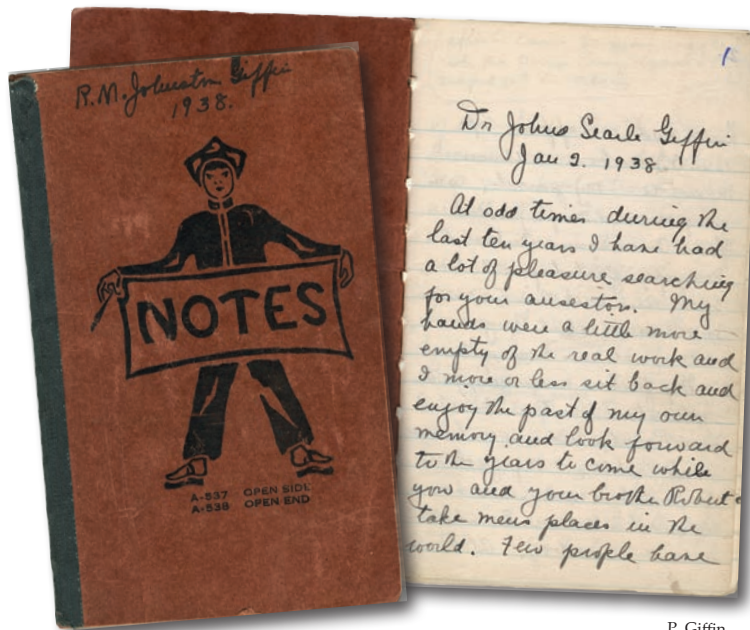 R.M. Johnston Giffin
1938.
NOTES
A-537 OPEN SIDE
A-538 OPEN END
1
Dr Johns Searle Giffin
Jan 2. 1938
At odd times during the
last ten years I have had
a lot of pleasure searching
for your ansestors. My
hands were a little more
empty of the real work and
I more or less sit back and
enjoy the past of my own
memory and look forward
to the years to come while
you and your brother Robert
take mens places in the
world. Few people have
P. Giffin